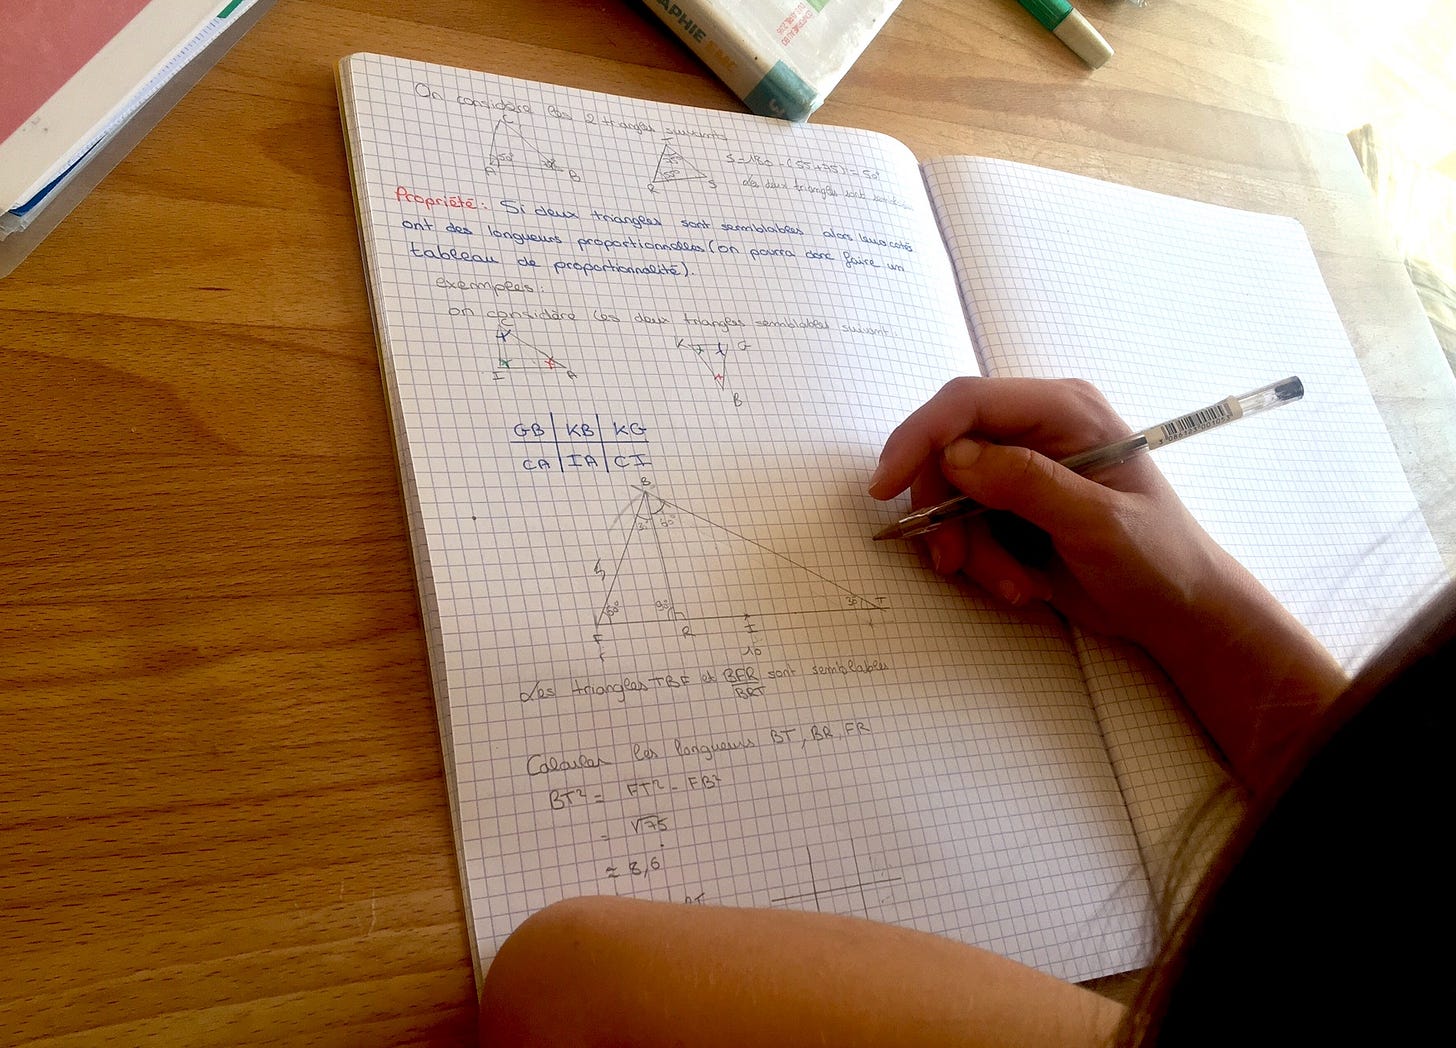 APHIE EMC
On considère les 2 triangles suivants
C
50°
A
B
75°
55°
R
S
S=180-(55+75)=50°
Les deux triangles sont
Propriété: Si deux triangles sont semblables alors leurs cotés
ont des longueurs proportionnelles (on pourra donc faire un
tableau de proportionnalité).
exemples:
on considère les deux triangles semblables suivant.
C
I
A
K
G
B
GB | KB | KG
CA | IA | CI
B
60°
5
60°
90°
30
T
F
R
I
10
Les triangles TBF et BFR sont semblables
BRT
Calculer les longueurs BT, BR, FR
BT² = FT² - FB²
= √75
≈ 8,6
BT